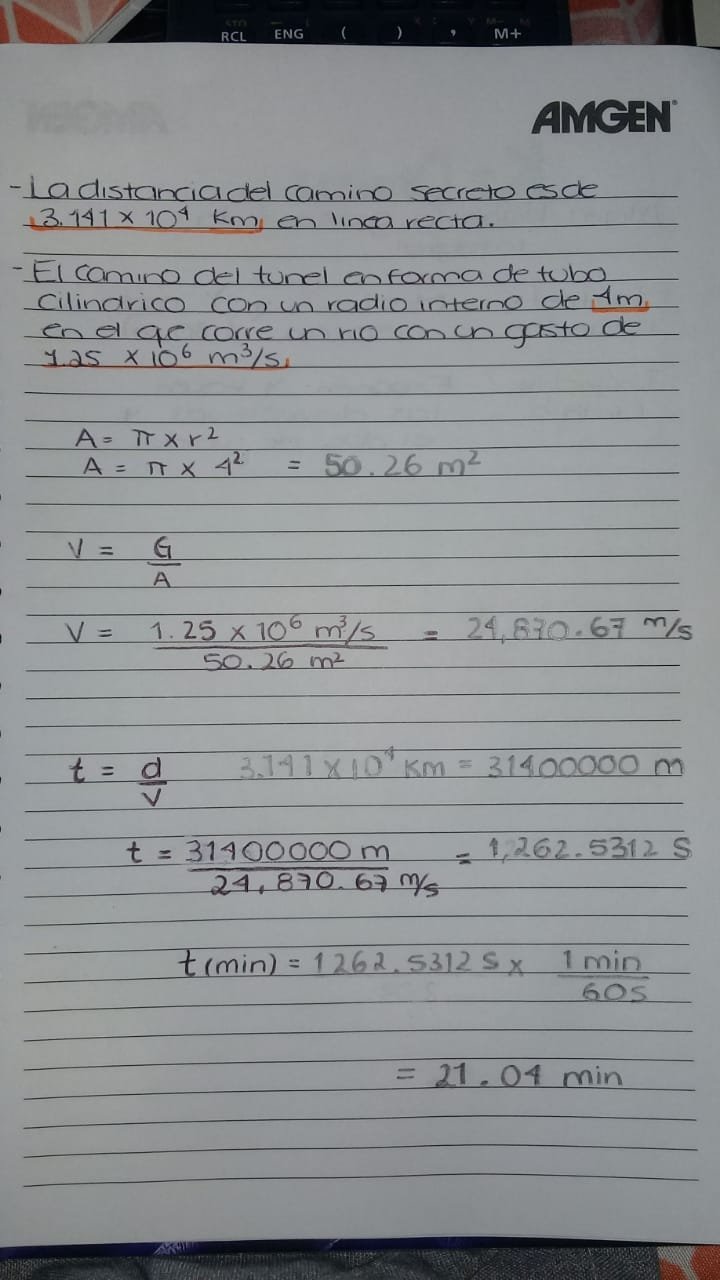 RCL ENG ( ) , M+
AMGEN
- La distancia del camino secreto es de
3.141 x 10⁴ Km, en linea recta.
- El camino del tunel en forma de tubo
cilindrico con un radio interno de 4m,
en el qe corre un rio con un gasto de
1.25 x 10⁶ m³/s,
A = π x r²
A = π x 4² = 50.26 m²
V = G
A
V = 1.25 x 10⁶ m³/s = 24,870.67 m/s
50.26 m²
t = d 3.141 x 10⁴ Km = 31400000 m
V
t = 31400000 m = 1,262.5312 S
24,870.67 m/s
t (min) = 1262.5312 S x 1 min
60s
= 21.04 min